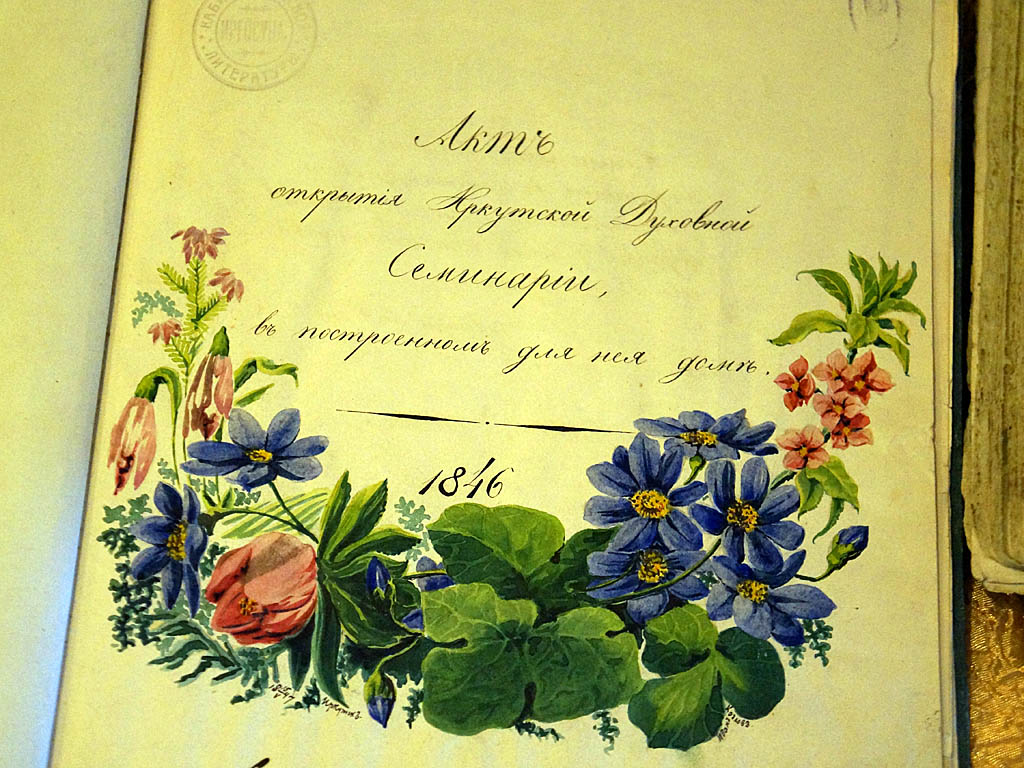 ЛИТЕРАТУРЫ
Актъ
открытія Иркутской Духовной
Семинаріи,
въ построенномъ для нея домѣ.
1846
Иркутскъ